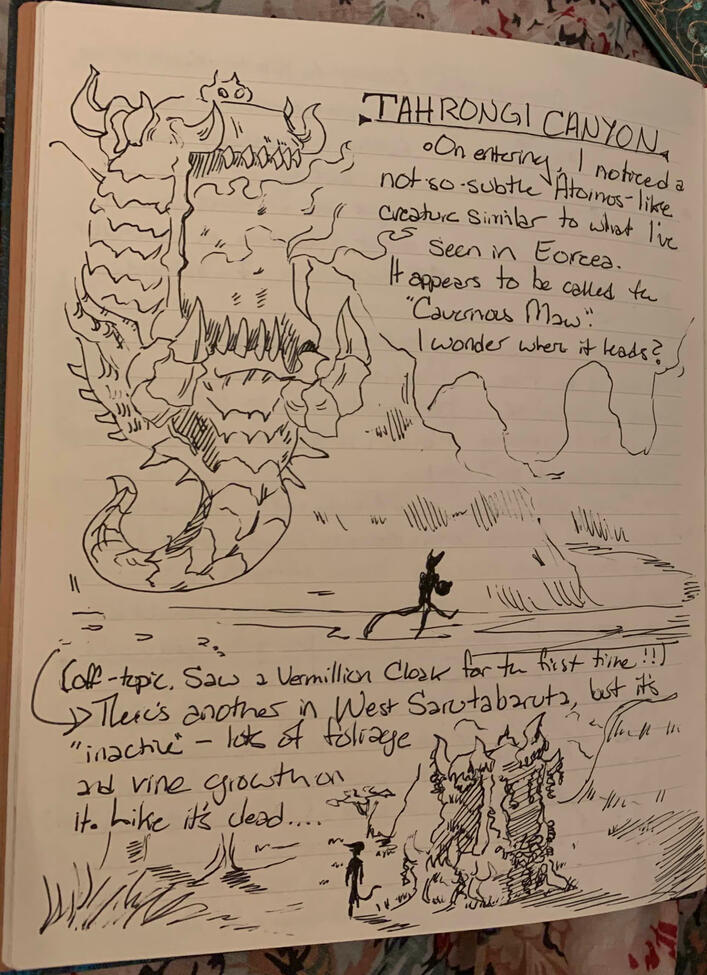 TAHRONGI CANYON
On entering, I noticed a
not-so-subtle Atomos-like
creature similar to what I've
seen in Eorcea.
It appears to be called the
"Cavernous Maw".
I wonder wher it leads?
(off-topic. Saw a Vermillion Cloak for the first time!!)
There's another in West Sarutabaruta, but it's
"inactive" - lots of foliage
and vine growth on
it. Like it's dead....